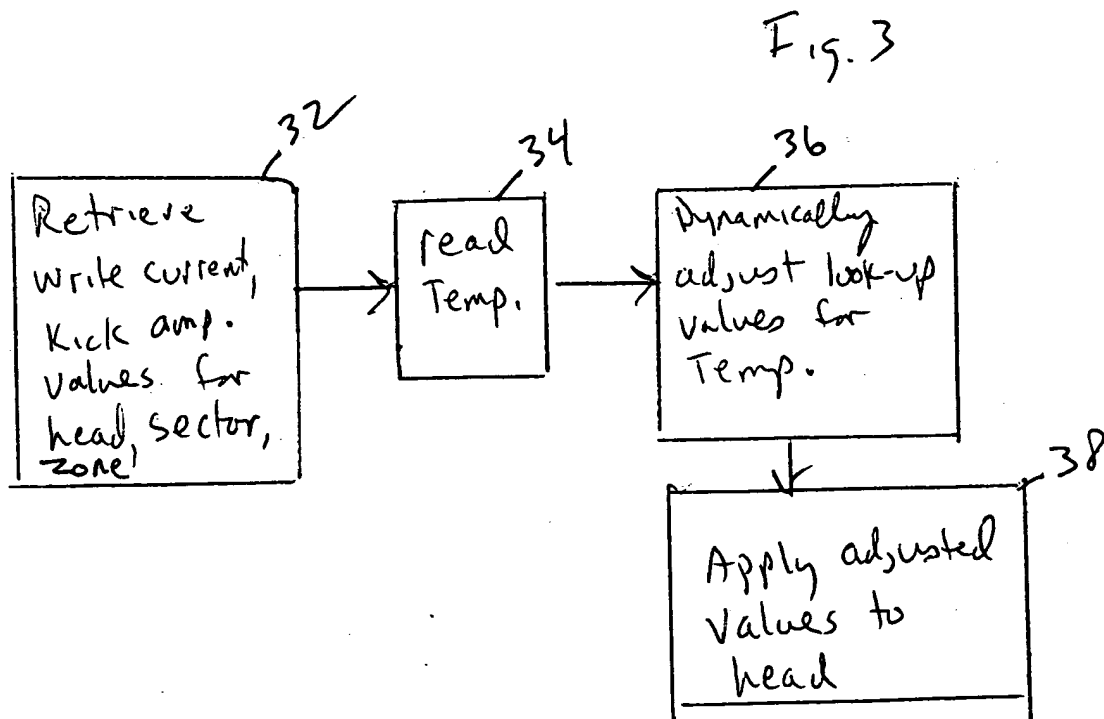 Fig. 3
32
Retrieve
write current,
Kick amp.
values for
head, sector,
zone
34
read
Temp.
36
Dynamically
adjust look-up
values for
Temp.
38
Apply adjusted
values to
head